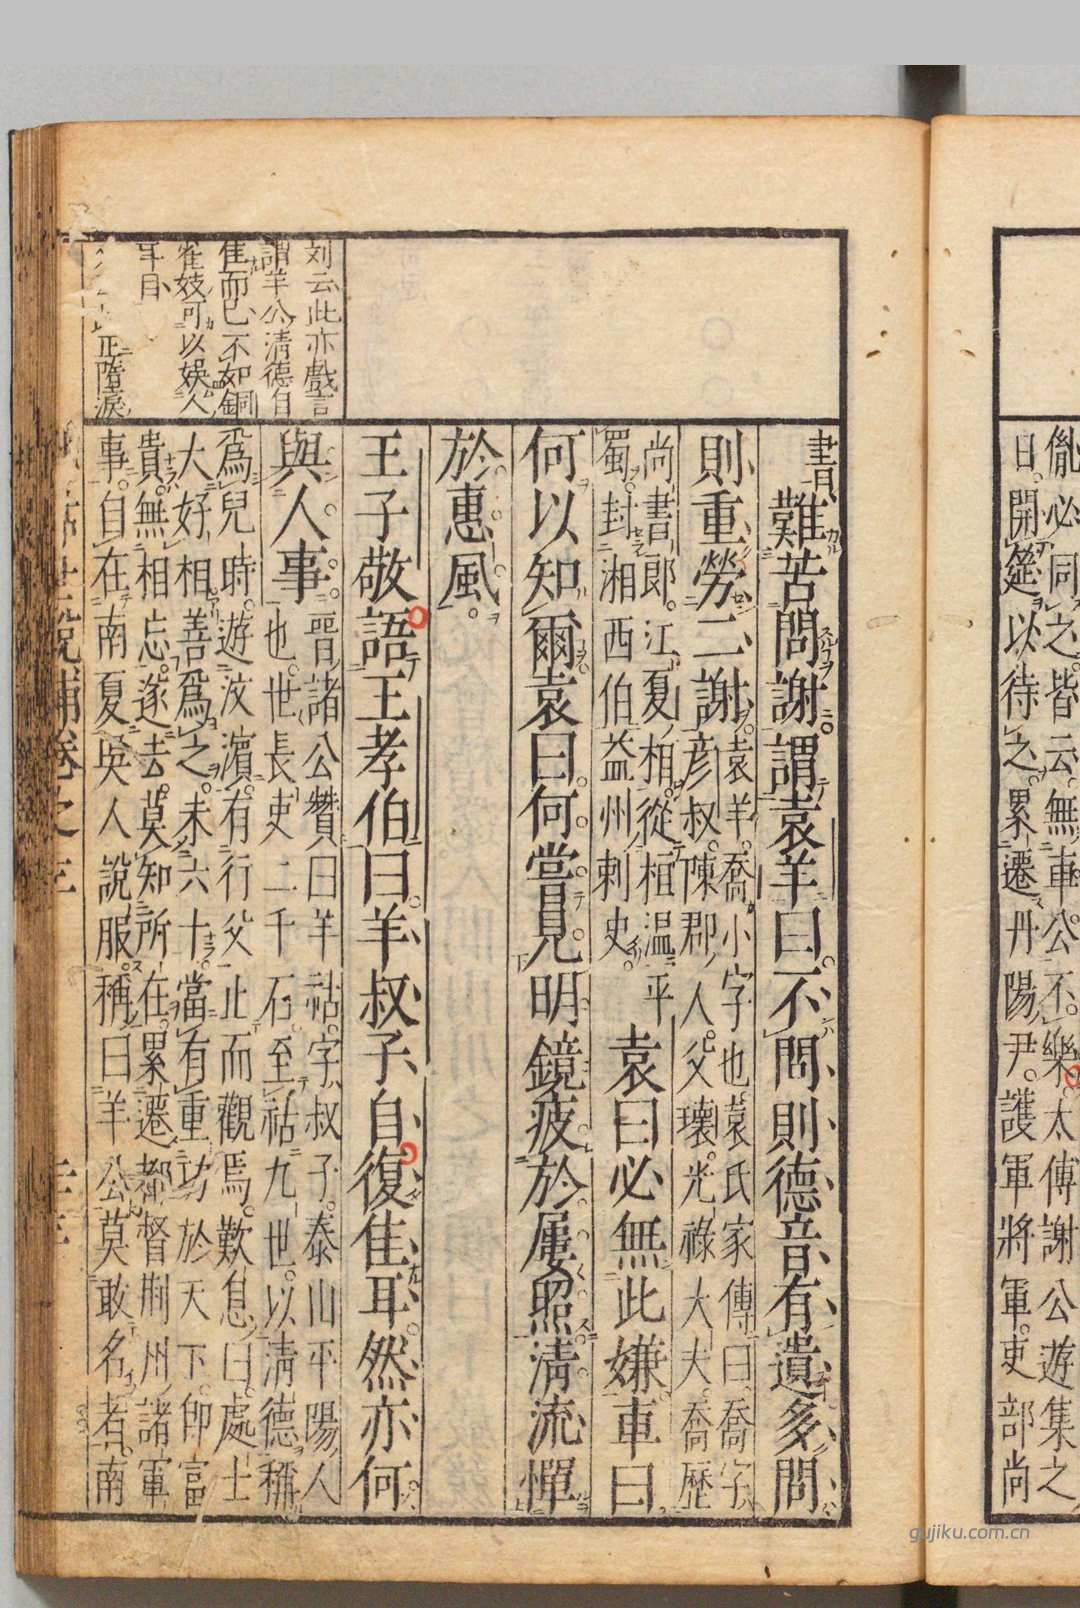 胤必同之皆云無車公不樂太傅謝公遊集之
日開筵以待之累遷丹陽尹護軍將軍吏部尚
書難苦問謝謂袁羊曰不問則德音有遺多問
則重勞二謝袁羊喬小字也袁氏家傳曰喬字
彦叔陳郡人父瓌光祿大夫喬歷
尚書郎江夏相從桓溫平
蜀封湘西伯益州刺史袁曰必無此嫌車曰
何以知爾袁曰何嘗見明鏡疲於屢照清流憚
於惠風
王子敬語王孝伯曰羊叔子自復佳耳然亦何
與人事晉諸公贊曰羊祜字叔子泰山平陽人
也世長吏二千石至祜九世以清德稱
爲兒時遊汶濱有行父止而觀焉歎息曰處士
大好相善爲之未六十當有重功於天下卽富
貴無相忘遂去莫知所在累遷都督荊州諸軍
事自在南夏吳人說服稱曰羊公莫敢名者南
刘云此亦戲言
謂羊公清德自
佳而已不如銅
雀妓可以娛人
耳目
正墮淚
世說補卷之三
gujiku.com.cn